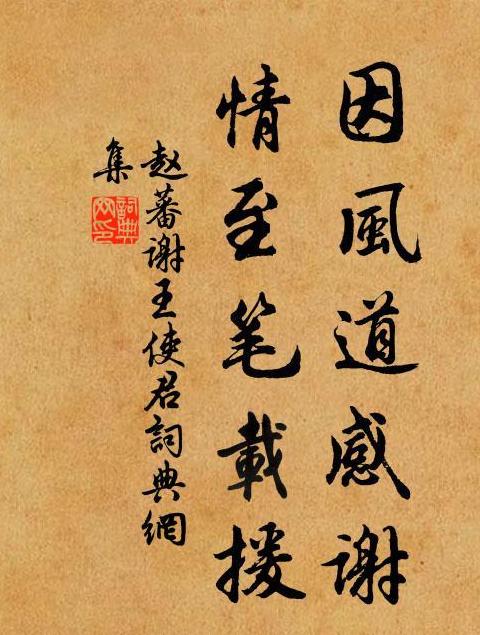 因風道感谢
情至笔載援
赵蕃谢王使君詞典網
集
詞典
网印